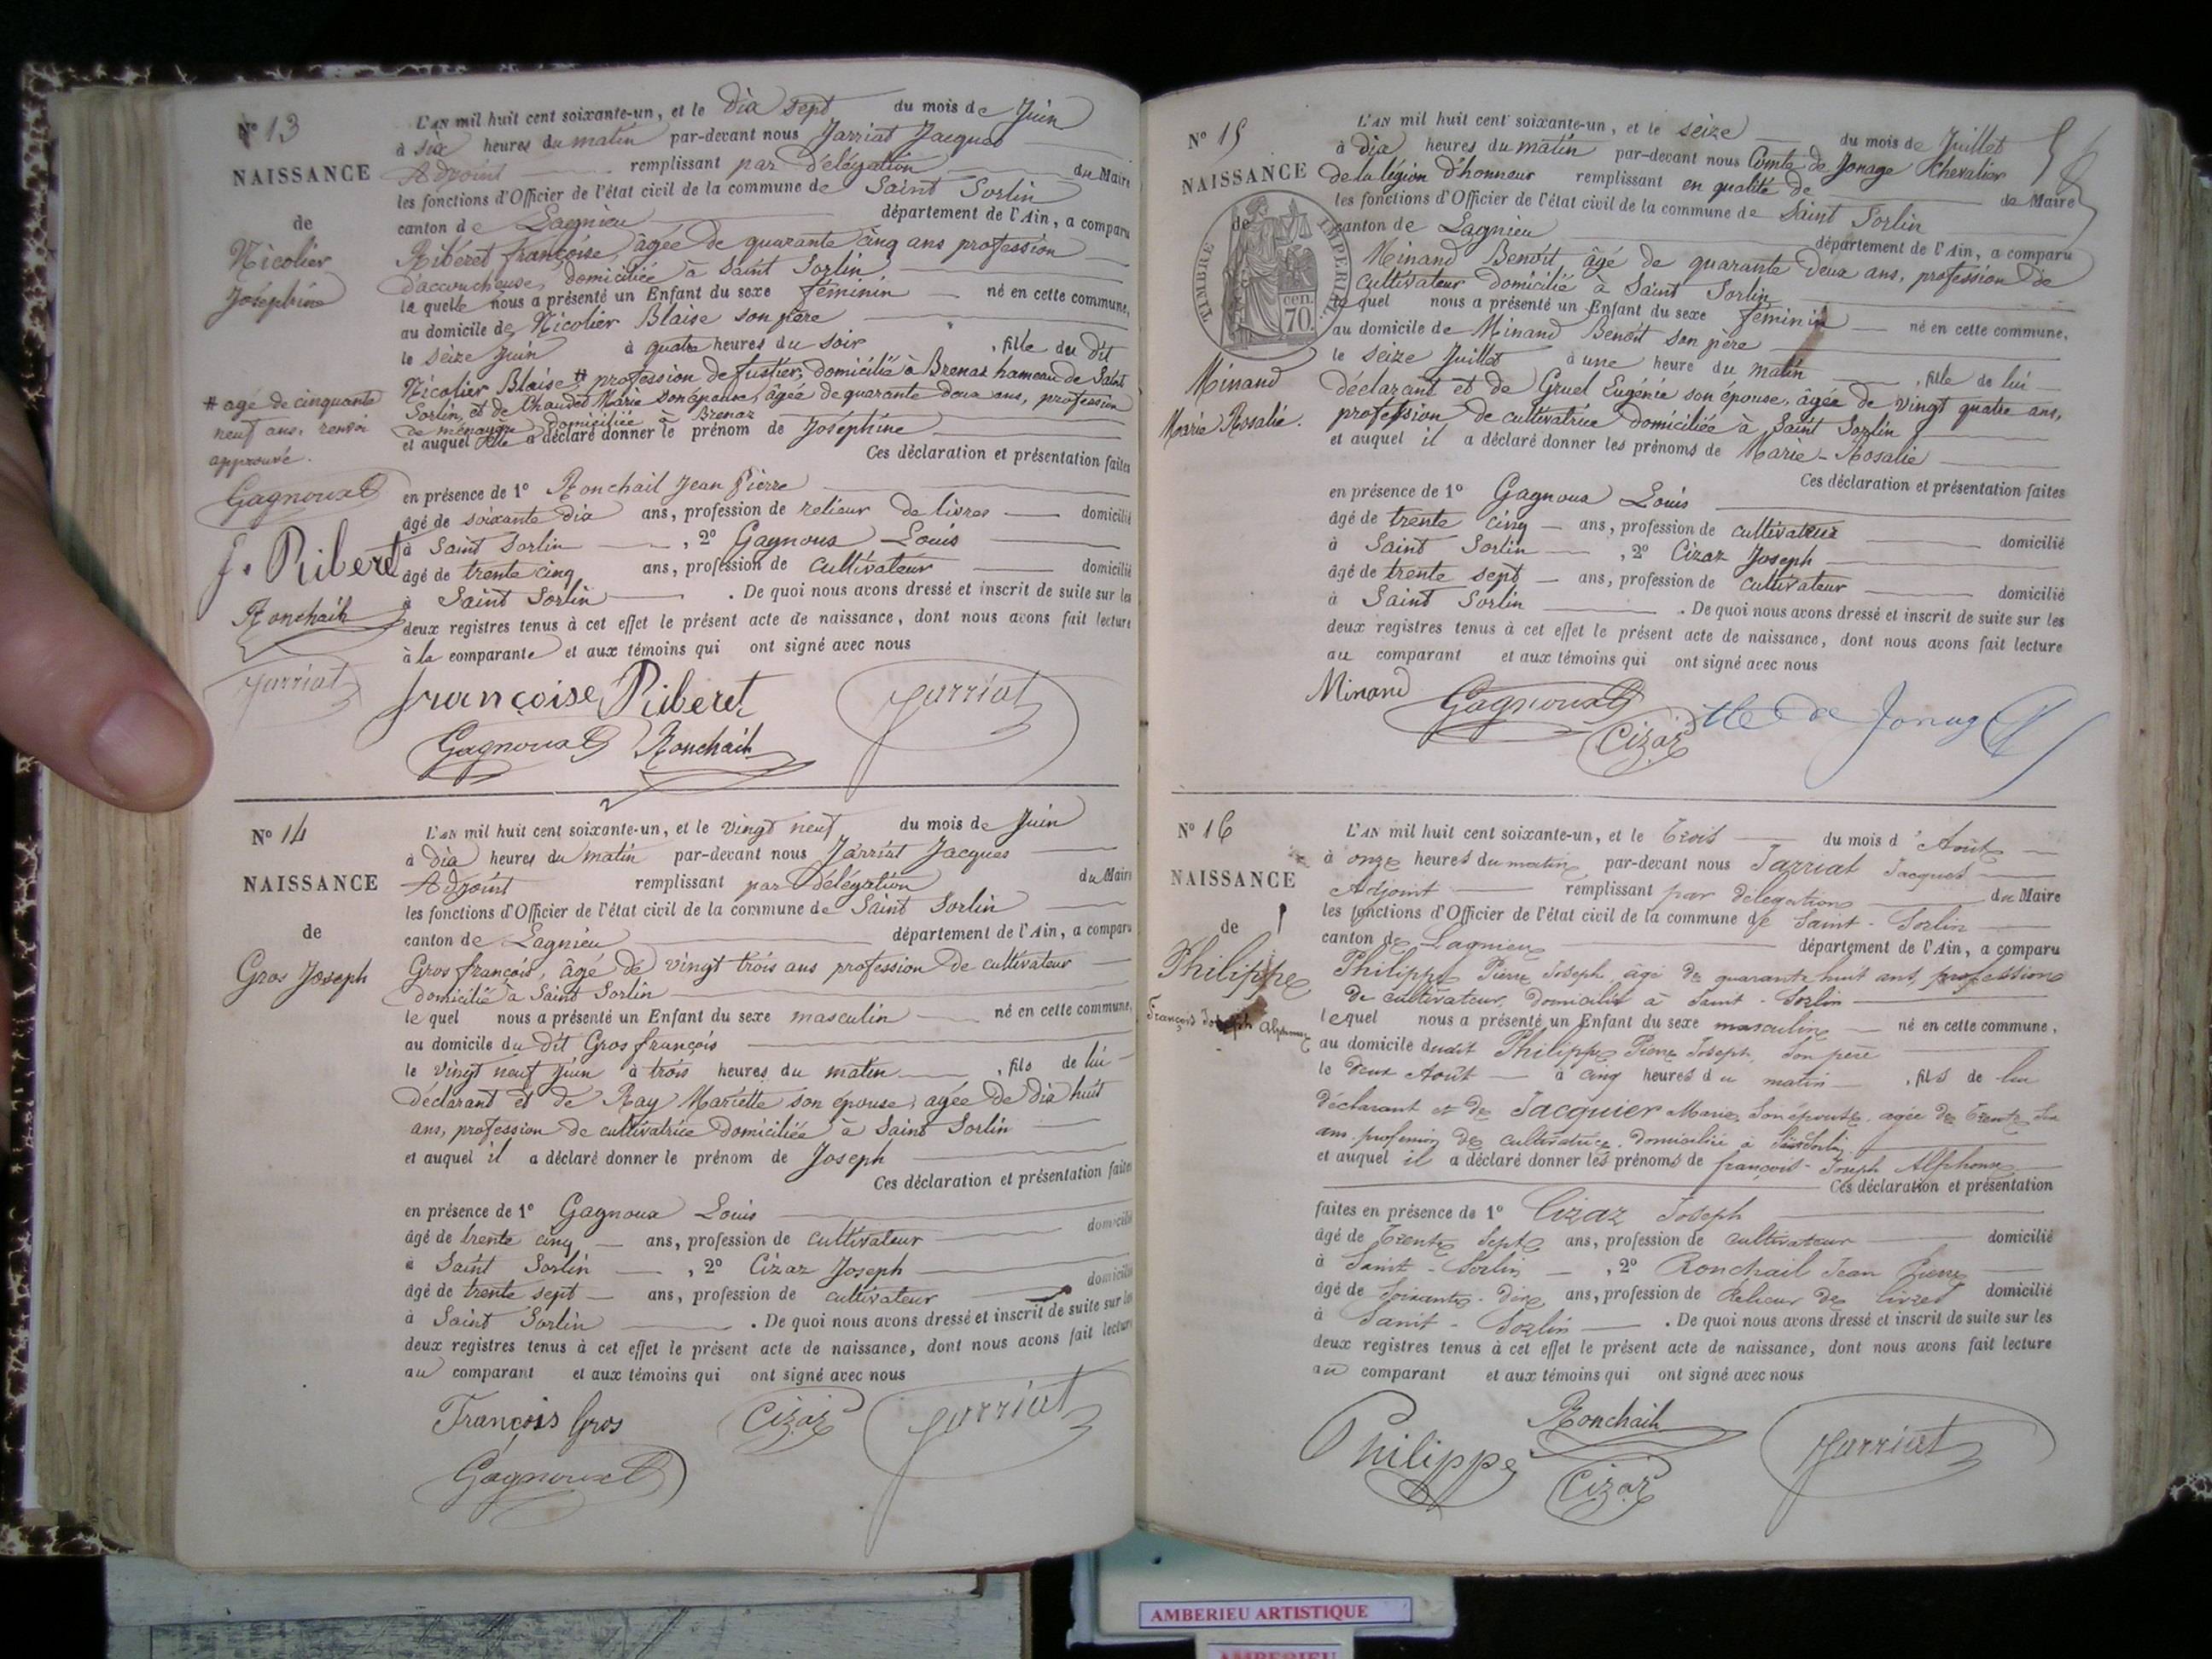 N° 13
NAISSANCE
de
Nicolier
Joséphine
# agé de cinquante
neuf ans, renvoi
approuvé.
Gagnoux
f. Riberet
Ronchail
Jarriat
L'AN mil huit cent soixante-un, et le dix sept du mois de Juin
à six heures du matin par-devant nous Jarriat Jacques
Adjoint remplissant par délégation du Maire
les fonctions d'Officier de l'état civil de la commune de Saint Sorlin
canton de Lagnieu département de l'Ain, a comparu
Ribéret françoise, âgée de quarante cinq ans profession
d'accoucheuse, domiciliée à Saint Sorlin,
la quelle nous a présenté un Enfant du sexe féminin né en cette commune,
au domicile de Nicolier Blaise son père
le seize Juin à quatre heures du soir , fille du dit
Nicolier Blaise # profession de fustier, domicilié à Brenaz hameau de Saint
Sorlin, et de Chaudet Marie son épouse, âgée de quarante deux ans, profession
de ménagère domiciliée à Brenaz
et auquel elle a déclaré donner le prénom de Joséphine
Ces déclaration et présentation faites
en présence de 1° Ronchail Jean Pierre
âgé de soixante dix ans, profession de relieur de livres domicilié
à Saint Sorlin , 2° Gagnoux Louis
âgé de trente cinq ans, profession de cultivateur domicilié
à Saint Sorlin . De quoi nous avons dressé et inscrit de suite sur les
deux registres tenus à cet effet le présent acte de naissance, dont nous avons fait lecture
à la comparante et aux témoins qui ont signé avec nous
françoise Riberet
Jarriat
Gagnoux Ronchail
N° 14
NAISSANCE
de
Gros Joseph
L'AN mil huit cent soixante-un, et le vingt neuf du mois de Juin
à dix heures du matin par-devant nous Jarriat Jacques
Adjoint remplissant par délégation du Maire
les fonctions d'Officier de l'état civil de la commune de Saint Sorlin
canton de Lagnieu département de l'Ain, a comparu
Gros françois, âgé de vingt trois ans profession de cultivateur
domicilié à Saint Sorlin
le quel nous a présenté un Enfant du sexe masculin né en cette commune,
au domicile du dit Gros françois
le vingt neuf Juin à trois heures du matin , fils de lui
déclarant et de Ray Mariette son épouse, agée de dix huit
ans, profession de cultivatrice domiciliée à Saint Sorlin
et auquel il a déclaré donner le prénom de Joseph
Ces déclaration et présentation faites
en présence de 1° Gagnoux Louis
âgé de trente cinq ans, profession de cultivateur domicilié
à Saint Sorlin , 2° Cizaz Joseph
âgé de trente sept ans, profession de cultivateur domicilié
à Saint Sorlin . De quoi nous avons dressé et inscrit de suite sur les
deux registres tenus à cet effet le présent acte de naissance, dont nous avons fait lecture
au comparant et aux témoins qui ont signé avec nous
François Gros Cizaz Jarriat
Gagnoux
N° 15
NAISSANCE
de
TIMBRE IMPERIAL
cen.
70.
Minand
Marie Rosalie.
L'AN mil huit cent soixante-un, et le seize du mois de Juillet
à dix heures du matin par-devant nous Comte de Jonage Chevalier
de la légion d'honneur remplissant en qualité de de Maire
les fonctions d'Officier de l'état civil de la commune de Saint Sorlin
canton de Lagnieu département de l'Ain, a comparu
Minand Benoit âgé de quarante deux ans, profession de
cultivateur domicilié à Saint Sorlin
le quel nous a présenté un Enfant du sexe féminin né en cette commune,
au domicile de Minand Benoit son père
le seize Juillet à une heure du matin , fille de lui
déclarant et de Gruel Eugénie son épouse, âgée de vingt quatre ans,
profession de cultivatrice domiciliée à Saint Sorlin
et auquel il a déclaré donner les prénoms de Marie-Rosalie
Ces déclaration et présentation faites
en présence de 1° Gagnoux Louis
âgé de trente cinq ans, profession de cultivateur domicilié
à Saint Sorlin , 2° Cizaz Joseph
âgé de trente sept ans, profession de cultivateur domicilié
à Saint Sorlin . De quoi nous avons dressé et inscrit de suite sur les
deux registres tenus à cet effet le présent acte de naissance, dont nous avons fait lecture
au comparant et aux témoins qui ont signé avec nous
Minand Gagnoux de Jonage
Cizaz
N° 16
NAISSANCE
de
Philippe
François Joseph Alphonse
L'AN mil huit cent soixante-un, et le Trois du mois d'Août
à onze heures du matin par-devant nous Jarriat Jacques
Adjoint remplissant par délégation du Maire
les fonctions d'Officier de l'état civil de la commune de Saint-Sorlin
canton de Lagnieu département de l'Ain, a comparu
Philippe Pierre Joseph âgé de quarante huit ans, profession
de cultivateur, domicilié à Saint-Sorlin
lequel nous a présenté un Enfant du sexe masculin né en cette commune,
au domicile dudit Philippe Pierre Joseph, son père
le deux Août à cinq heures du matin , fils de lui
déclarant et de Jacquier Marie, son épouse, agée de trente
ans profession de cultivatrice, domiciliée à St Sorlin
et auquel il a déclaré donner les prénoms de françois-Joseph Alphonse
Ces déclaration et présentation
faites en présence de 1° Cizaz Joseph
âgé de Trente Sept ans, profession de cultivateur domicilié
à Saint-Sorlin , 2° Ronchail Jean Pierre
âgé de Soixante-dix ans, profession de Relieur de livres domicilié
à Saint-Sorlin . De quoi nous avons dressé et inscrit de suite sur les
deux registres tenus à cet effet le présent acte de naissance, dont nous avons fait lecture
au comparant et aux témoins qui ont signé avec nous
Philippe Ronchail Jarriat
Cizaz
AMBERIEU ARTISTIQUE
AMBERIEU